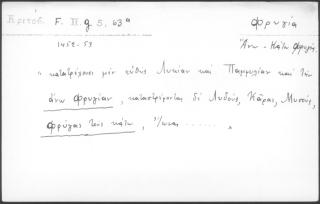 Κριτόβ. F. II g 5, 63ª φρυγία
1452-53 Ἄνω - Κάτω Φρυγία
" καταστρέφεται μὲν εὐθὺς Λυκίαν καὶ Παμφυλίαν καὶ τὴν
ἄνω φρυγίαν, καταστρέφεται δὲ Λυδούς, Κᾶρας, Μυσούς,
φρύγας τοὺς κάτω, Ἴωνας ....... „